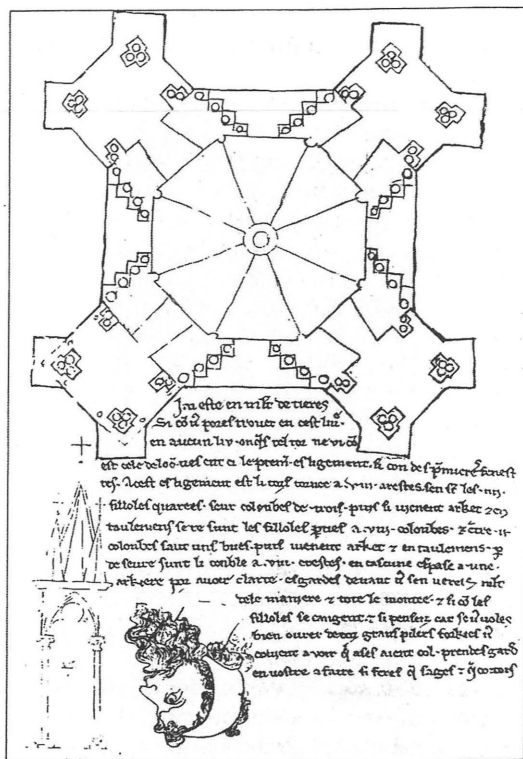 Jai este en mlt de tieres
Si cõ v⁹ pores trover en cest livᵉ.
en aucun liu onqs tel tor ne vi cõ
est cele de loõ ves ent ci le premi esligement si con des pmieres fenest
res. A cest esligement est li tors tornee a viii arestes sen st les iiii
filloles quarees seur colonbes de trois puis si vienent arket
taulemens se re sunt les filloles ties a viii colonbes entre ii
colonbes saut uns bues puis vienent arket en taulemens p
de seure sunt li conble a viii crestes en cascune espase a une
arkiere por avoir clarte esgardes devant
de le maniere tote le montee si cõ les
filloles se cangent si penses car se v⁹ voles
bien ovrer de grans pilers
covient avoir q ases aient col prendes gard
en vostre afaire si feres q sages cortois